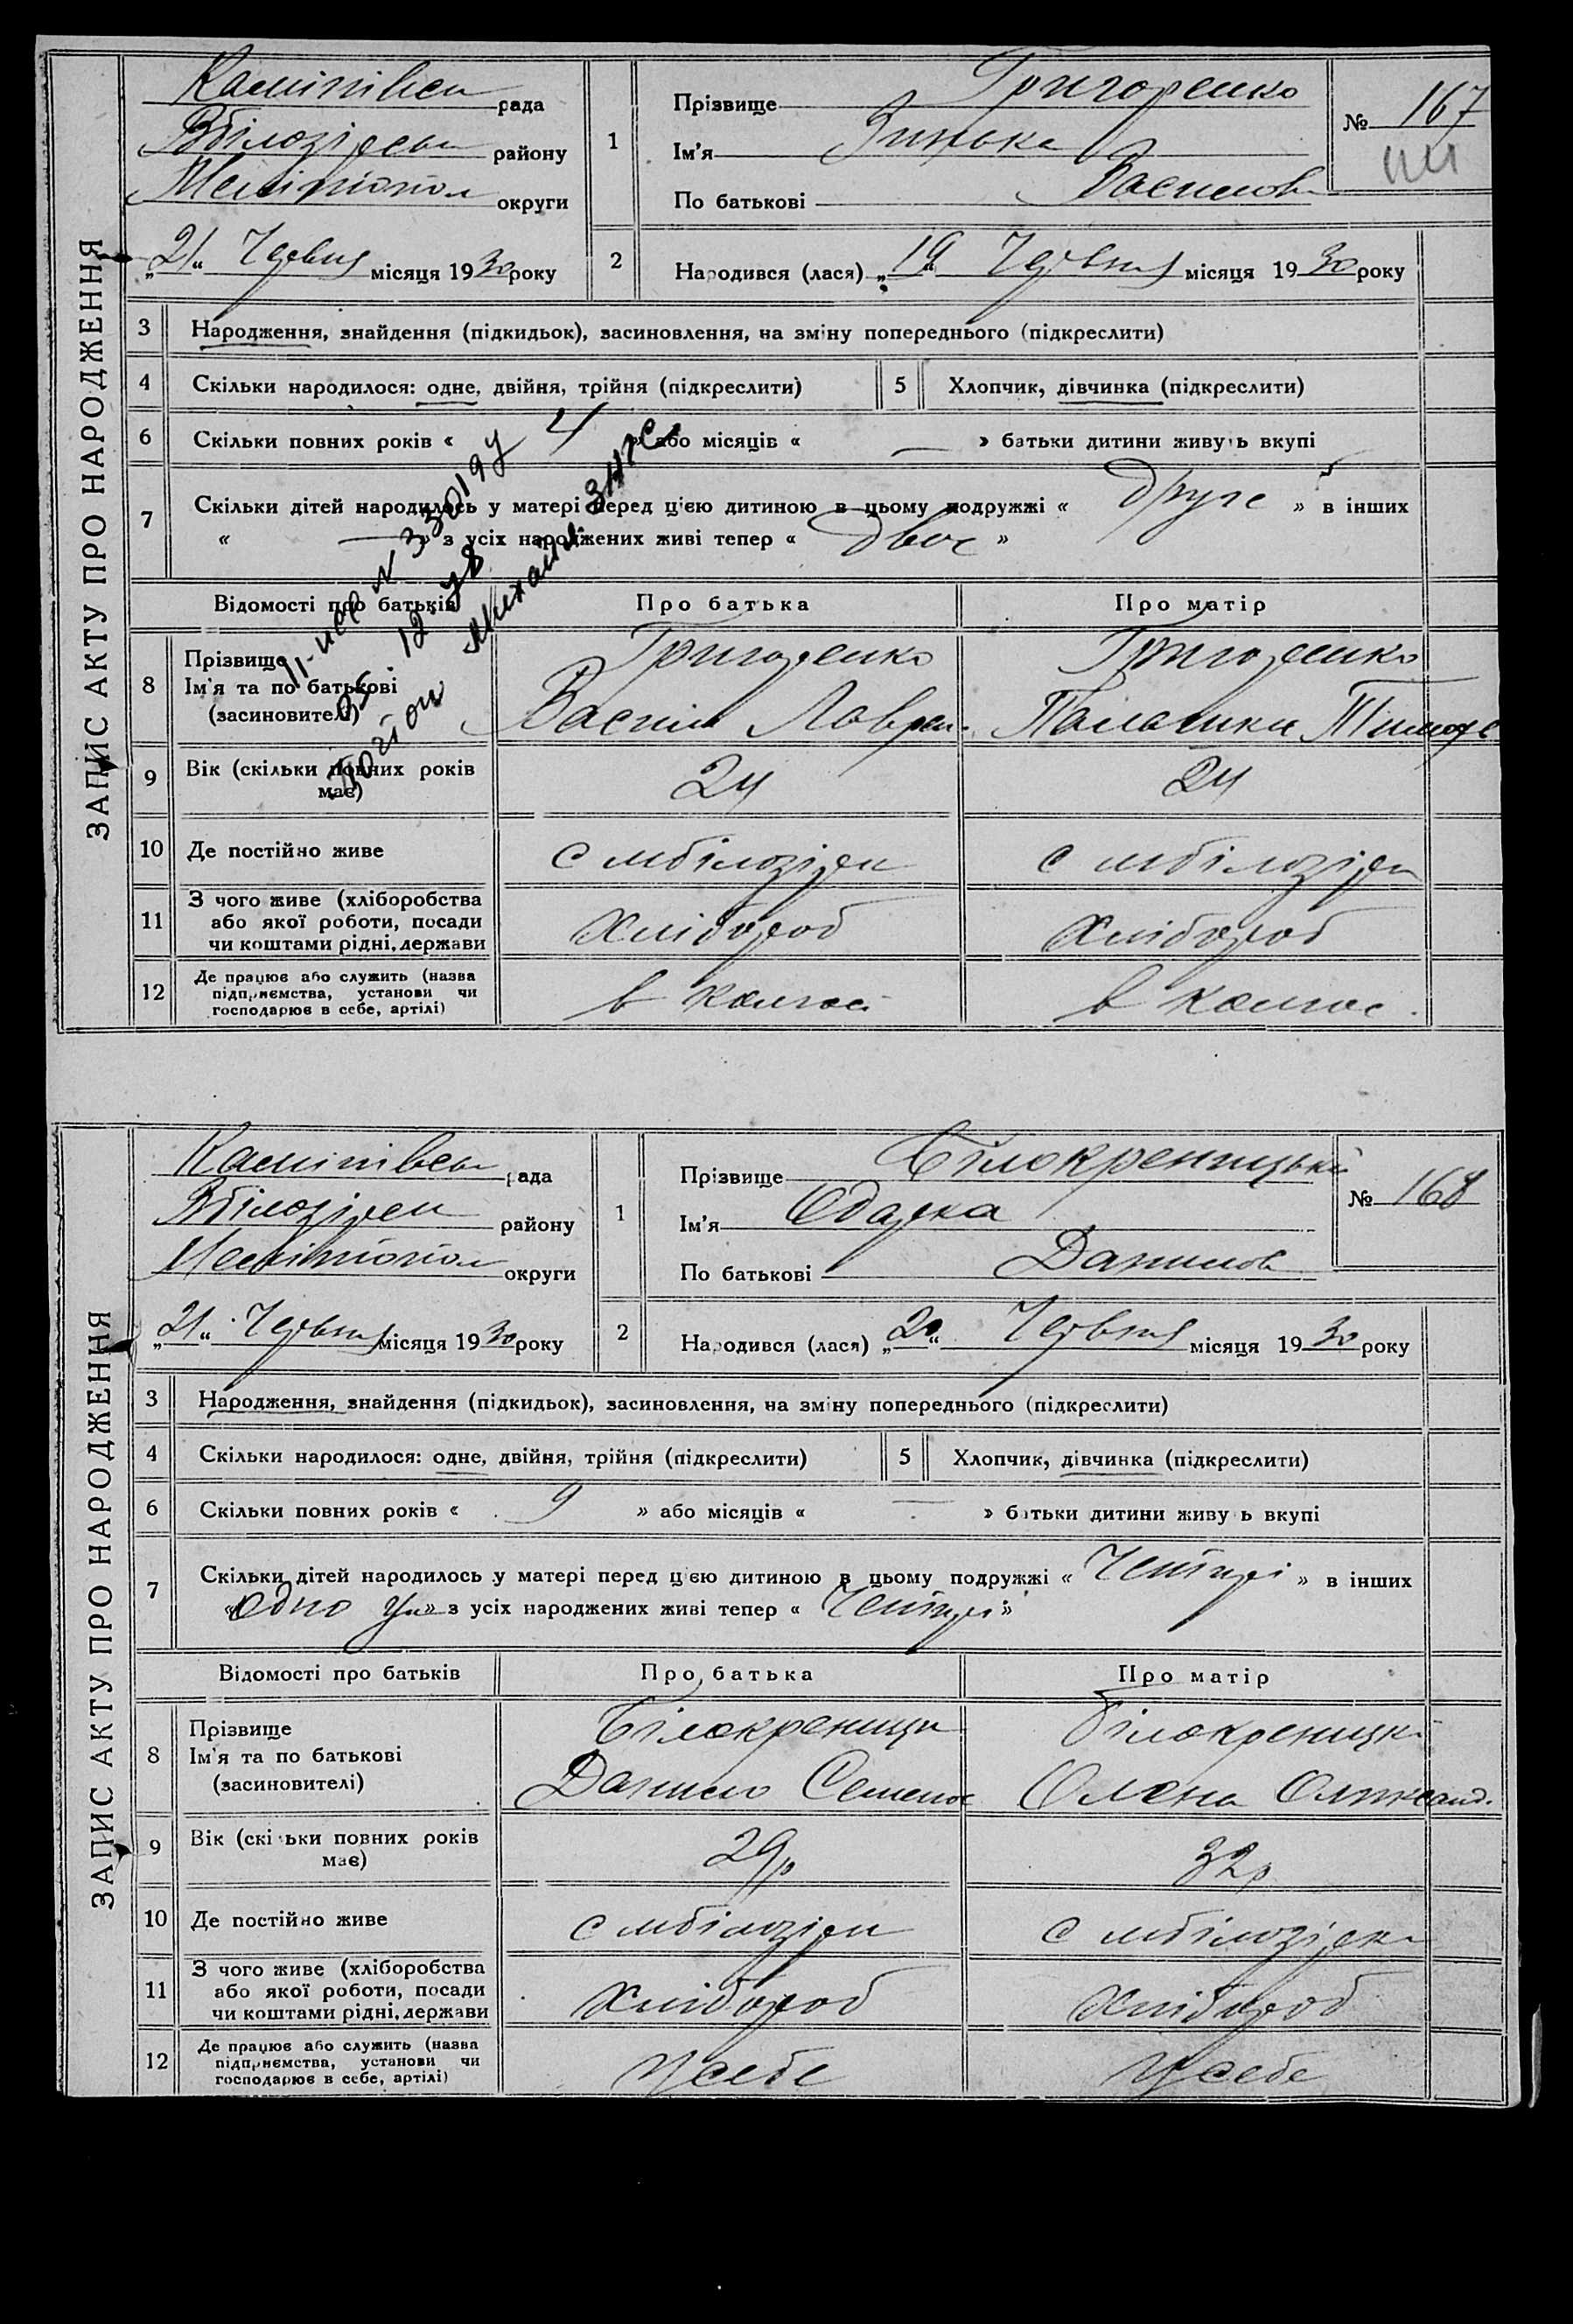 ЗАПИС АКТУ ПРО НАРОДЖЕННЯ
рада
району
Мелітопол округи
„21“ Червня місяця 1930 року
1
Прізвище Григоренко
Ім'я Зинька
По батькові Васильов
№ 167
2
Народився (лася) „19“ Червня місяця 1930 року
3 Народження, знайдення (підкидьок), засиновлення, на зміну попереднього (підкреслити)
4 Скільки народилося: одне, двійня, трійня (підкреслити) 5 Хлопчик, дівчинка (підкреслити)
6 Скільки повних років « 4 » або місяців « — » батьки дитини живуть вкупі
7 Скільки дітей народилось у матері перед цією дитиною в цьому подружжі « друге » в інших
« — » з усіх народжених живі тепер « двоє »
Відомості про батьків Про батька Про матір
8 Прізвище Григоренко Григоренко
Ім'я та по батькові
(засновителі) Василь Лаврен.
9 Вік (скільки повних років має) 24 24
10 Де постійно живе с мбілозірки с мбілозірки
11 З чого живе (хліборобства або якої роботи, посади чи коштами рідні, держави хлібороб хлібороб
12 Де працює або служить (назва підприємства, установи чи господарює в себе, артілі) в колгос в колгос.
ЗАПИС АКТУ ПРО НАРОДЖЕННЯ
рада
району
Мелітопол округи
„21“ Червня місяця 1930 року
1
Прізвище Білокреницький
Ім'я Одарка
По батькові Данилов
№ 168
2
Народився (лася) „20“ Червня місяця 1930 року
3 Народження, знайдення (підкидьок), засиновлення, на зміну попереднього (підкреслити)
4 Скільки народилося: одне, двійня, трійня (підкреслити) 5 Хлопчик, дівчинка (підкреслити)
6 Скільки повних років « 9 » або місяців « — » батьки дитини живуть вкупі
7 Скільки дітей народилось у матері перед цією дитиною в цьому подружжі « Чотирі » в інших
« одно » з усіх народжених живі тепер « Чотирі »
Відомості про батьків Про батька Про матір
8 Прізвище Білокреницки Білокреницка
Ім'я та по батькові
(засиновителі) Данило Семенов Олена Олександ.
9 Вік (скільки повних років має) 29р 32р
10 Де постійно живе с мбілозірки с мбілозірки
11 З чого живе (хліборобства або якої роботи, посади чи коштами рідні, держави хлібороб хлібороб
12 Де працює або служить (назва підприємства, установи чи господарює в себе, артілі) У себе У себе